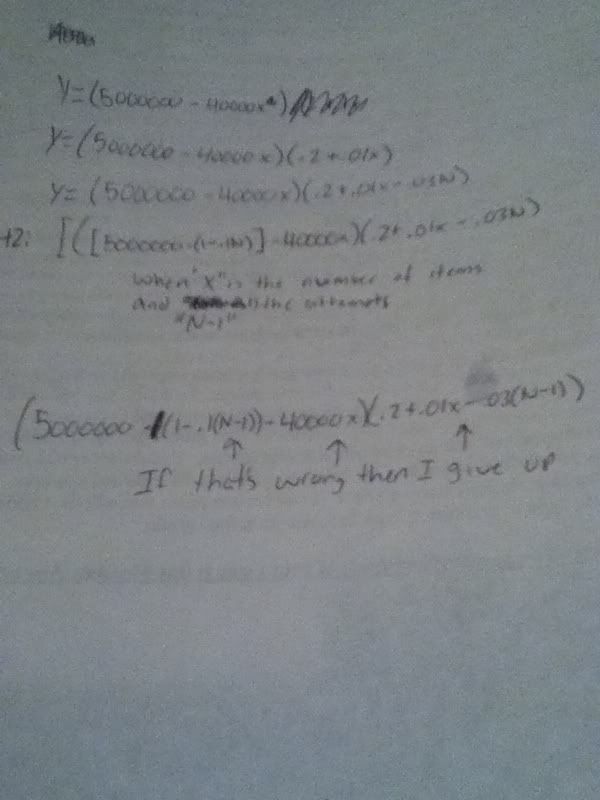 y=(5000000 - 40000x)
y=(5000000 - 40000x)(.2+.01x)
y= (5000000 - 40000x)(.2+.01x-.03N)
+2: [([5000000·(1-.1N)]-40000x)(.2+.01x-.03N)
when "x" is the number of items
and is the attempts
"N-1"
(5000000 ·(1-.1(N-1))-40000x)(.2+.01x-.03(N-1))
↑ ↑ ↑
If that's wrong then I give up